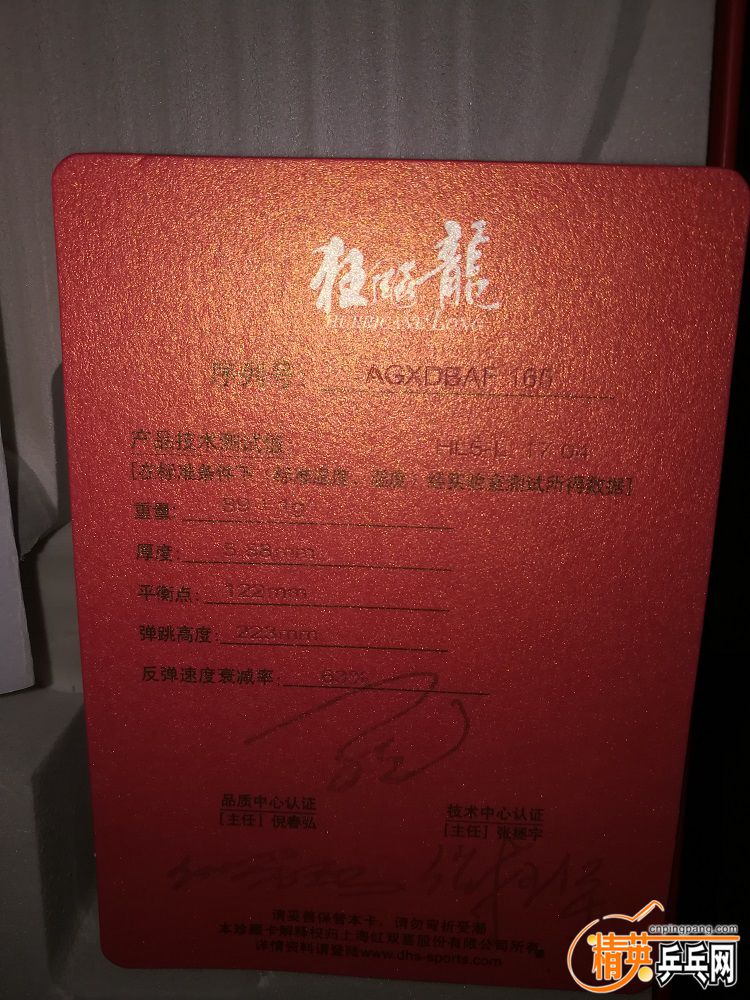 狂飚龍
HURRICANE LONG
序列号: AGXDBAF 166
产品技术测试值 HL5-L 17 04
[在标准条件下(标准温度、湿度)经实验室测试所得数据]
重量:
厚度: 5.88mm
平衡点: 122mm
弹跳高度: 223mm
反弹速度衰减率:
品质中心认证
[主任] 倪春弘
技术中心认证
[主任]
请妥善保管本卡,请勿弯折受潮
本珍藏卡解释权归上海红双喜股份有限公司所有
详情资料请登陆www.dhs-sports.com
cnpingpang.com
精英乒乓网